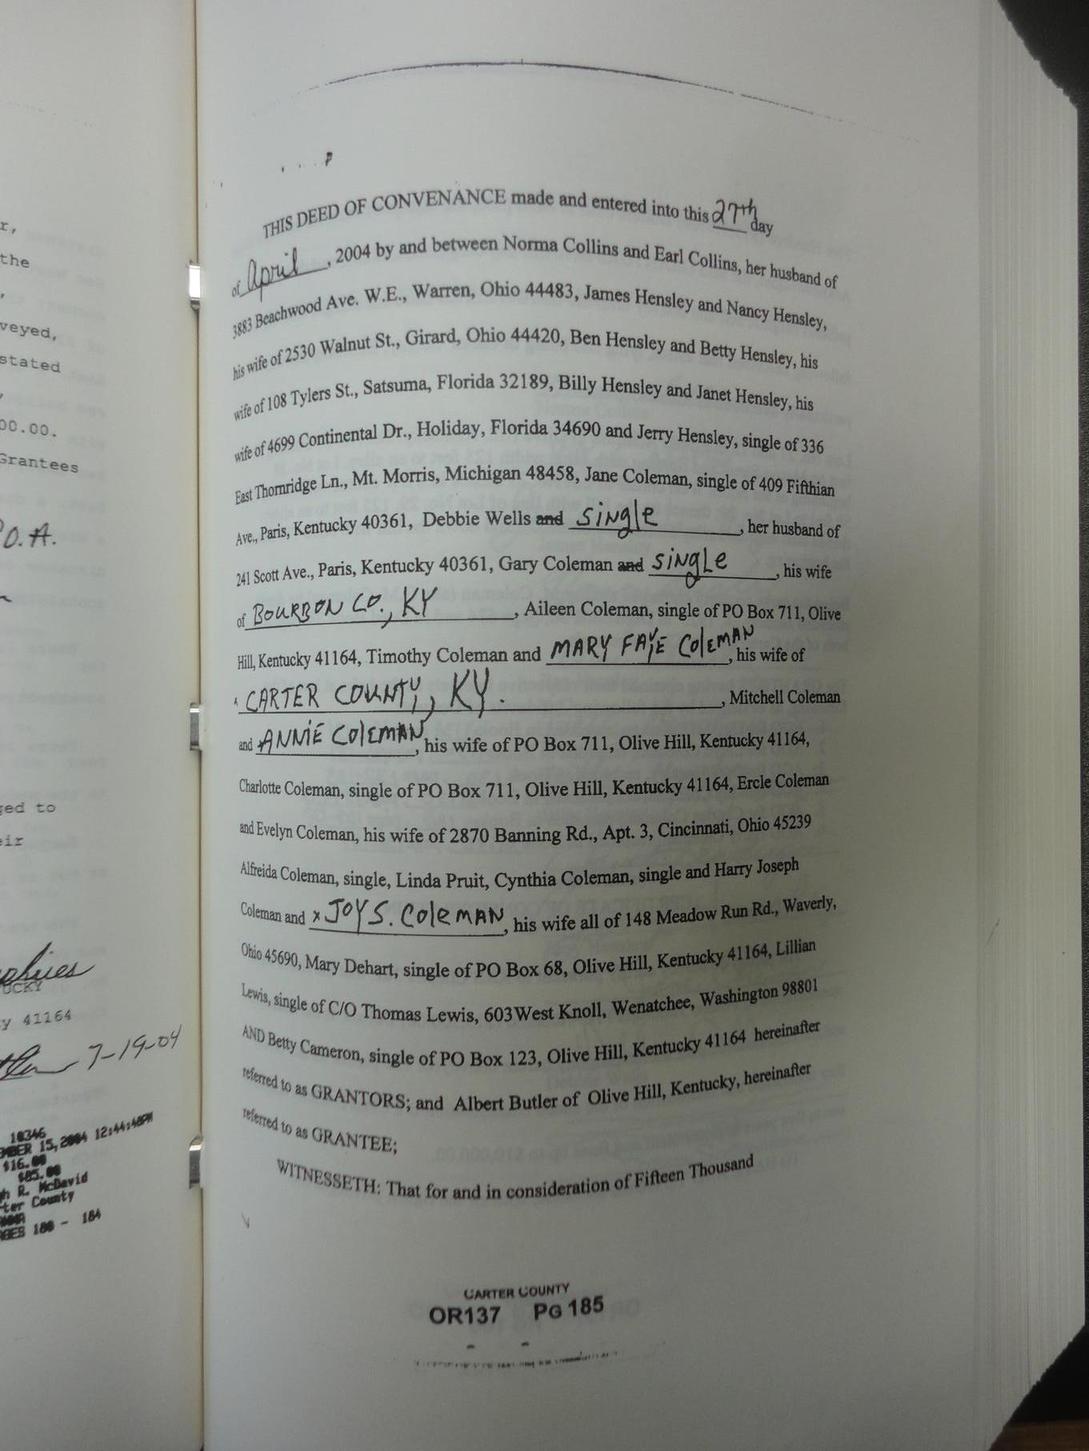 r,
the
veyed,
stated
00.00.
Grantees
P.O.A.
ged to
eir
UCKY
y 41164
7-19-04
10346
MBER 15, 2004 12:44:48PM
$16.00
$85.00
h R. McDavid
ter County
GES 180 - 184
THIS DEED OF CONVENANCE made and entered into this 27th day
of April, 2004 by and between Norma Collins and Earl Collins, her husband of
3883 Beachwood Ave. W.E., Warren, Ohio 44483, James Hensley and Nancy Hensley,
his wife of 2530 Walnut St., Girard, Ohio 44420, Ben Hensley and Betty Hensley, his
wife of 108 Tylers St., Satsuma, Florida 32189, Billy Hensley and Janet Hensley, his
wife of 4699 Continental Dr., Holiday, Florida 34690 and Jerry Hensley, single of 336
East Thornridge Ln., Mt. Morris, Michigan 48458, Jane Coleman, single of 409 Fifthian
Ave., Paris, Kentucky 40361, Debbie Wells and SiNgle, her husband of
241 Scott Ave., Paris, Kentucky 40361, Gary Coleman and SiNgLe, his wife
of BOURBON CO., KY, Aileen Coleman, single of PO Box 711, Olive
Hill, Kentucky 41164, Timothy Coleman and MARY FAYE ColeMAN, his wife of
CARTER COUNTY, KY., Mitchell Coleman
and ANNiE ColEMAN, his wife of PO Box 711, Olive Hill, Kentucky 41164,
Charlotte Coleman, single of PO Box 711, Olive Hill, Kentucky 41164, Ercle Coleman
and Evelyn Coleman, his wife of 2870 Banning Rd., Apt. 3, Cincinnati, Ohio 45239
Alfreida Coleman, single, Linda Pruit, Cynthia Coleman, single and Harry Joseph
Coleman and x JOY S. ColeMAN, his wife all of 148 Meadow Run Rd., Waverly,
Ohio 45690, Mary Dehart, single of PO Box 68, Olive Hill, Kentucky 41164, Lillian
Lewis, single of C/O Thomas Lewis, 603 West Knoll, Wenatchee, Washington 98801
AND Betty Cameron, single of PO Box 123, Olive Hill, Kentucky 41164 hereinafter
referred to as GRANTORS; and Albert Butler of Olive Hill, Kentucky, hereinafter
referred to as GRANTEE;
WITNESSETH: That for and in consideration of Fifteen Thousand
CARTER COUNTY
OR137 PG 185